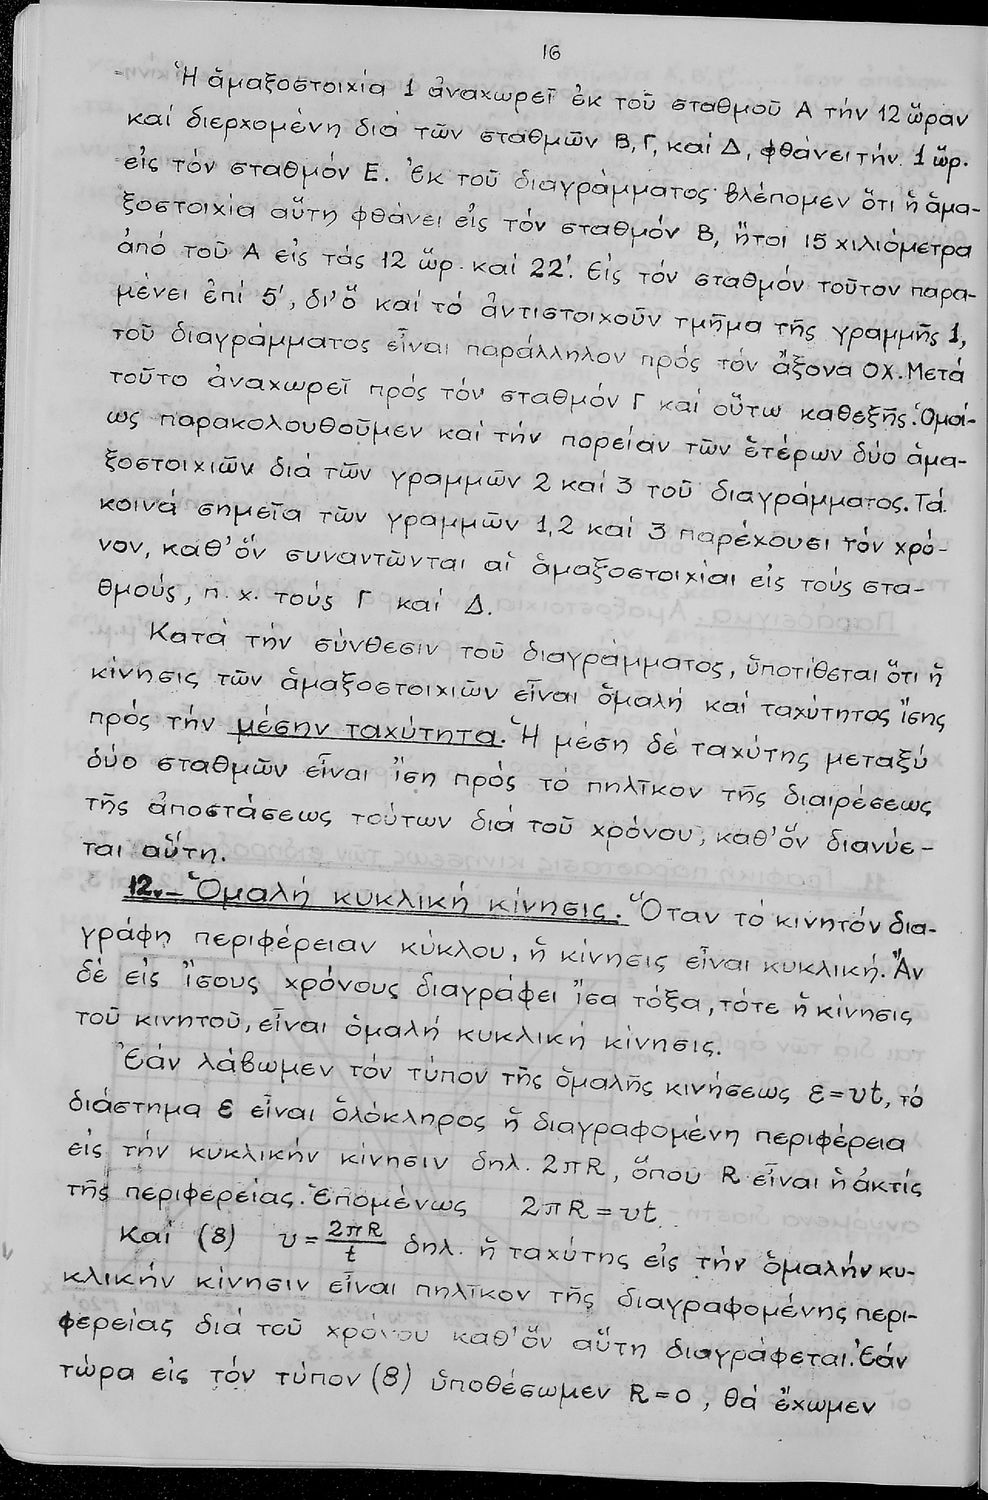 16
Ἡ ἁμαξοστοιχία 1 ἀναχωρεῖ ἐκ τοῦ σταθμοῦ Α τήν 12 ὥραν
καί διερχομένη διά τῶν σταθμῶν Β, Γ, καί Δ, φθάνει τήν 1 ὥρ.
εἰς τόν σταθμόν Ε. Ἐκ τοῦ διαγράμματος βλέπομεν ὅτι ἡ ἁμα-
ξοστοιχία αὕτη φθάνει εἰς τόν σταθμόν Β, ἤτοι 15 χιλιόμετρα
ἀπό τοῦ Α εἰς τάς 12 ὥρ. καί 22'. Εἰς τόν σταθμόν τοῦτον παρα-
μένει ἐπί 5', δι' ὅ καί τό ἀντιστοιχοῦν τμῆμα τῆς γραμμῆς 1,
τοῦ διαγράμματος εἶναι παράλληλον πρός τόν ἄξονα ΟΧ. Μετά
τοῦτο ἀναχωρεῖ πρός τόν σταθμόν Γ καί οὕτω καθεξῆς. Ὁμοί-
ως παρακολουθοῦμεν καί τήν πορείαν τῶν ἑτέρων δύο ἁμα-
ξοστοιχιῶν διά τῶν γραμμῶν 2 καί 3 τοῦ διαγράμματος. Τά
κοινά σημεῖα τῶν γραμμῶν 1, 2 καί 3 παρέχουσι τόν χρό-
νον, καθ' ὅν συναντῶνται αἱ ἁμαξοστοιχίαι εἰς τούς στα-
θμούς, π. χ. τούς Γ καί Δ.
Κατά τήν σύνθεσιν τοῦ διαγράμματος, ὑποτίθεται ὅτι ἡ
κίνησις τῶν ἁμαξοστοιχιῶν εἶναι ὁμαλή καί ταχύτητος ἴσης
πρός τήν μέσην ταχύτητα. Ἡ μέση δέ ταχύτης μεταξύ
δύο σταθμῶν εἶναι ἴση πρός τό πηλῖκον τῆς διαιρέσεως
τῆς ἀποστάσεως τούτων διά τοῦ χρόνου, καθ' ὅν διανύε-
ται αὕτη.
12.- Ὁμαλή κυκλική κίνησις. Ὅταν τό κινητόν δια-
γράφη περιφέρειαν κύκλου, ἡ κίνησις εἶναι κυκλική. Ἄν
δέ εἰς ἴσους χρόνους διαγράφει ἴσα τόξα, τότε ἡ κίνησις
τοῦ κινητοῦ, εἶναι ὁμαλή κυκλική κίνησις.
Ἐάν λάβωμεν τόν τύπον τῆς ὁμαλῆς κινήσεως ε = υt, τό
διάστημα ε εἶναι ὁλόκληρος ἡ διαγραφομένη περιφέρεια
εἰς τήν κυκλικήν κίνησιν δηλ. 2πR, ὅπου R εἶναι ἡ ἀκτίς
τῆς περιφερείας. Ἑπομένως 2πR = υt
Καί (8) υ = 2πR/t δηλ. ἡ ταχύτης εἰς τήν ὁμαλήν κυ-
κλικήν κίνησιν εἶναι πηλῖκον τῆς διαγραφομένης περι-
φερείας διά τοῦ χρόνου καθ' ὅν αὕτη διαγράφεται. Ἐάν
τώρα εἰς τόν τύπον (8) ὑποθέσωμεν R = 0, θά ἔχωμεν